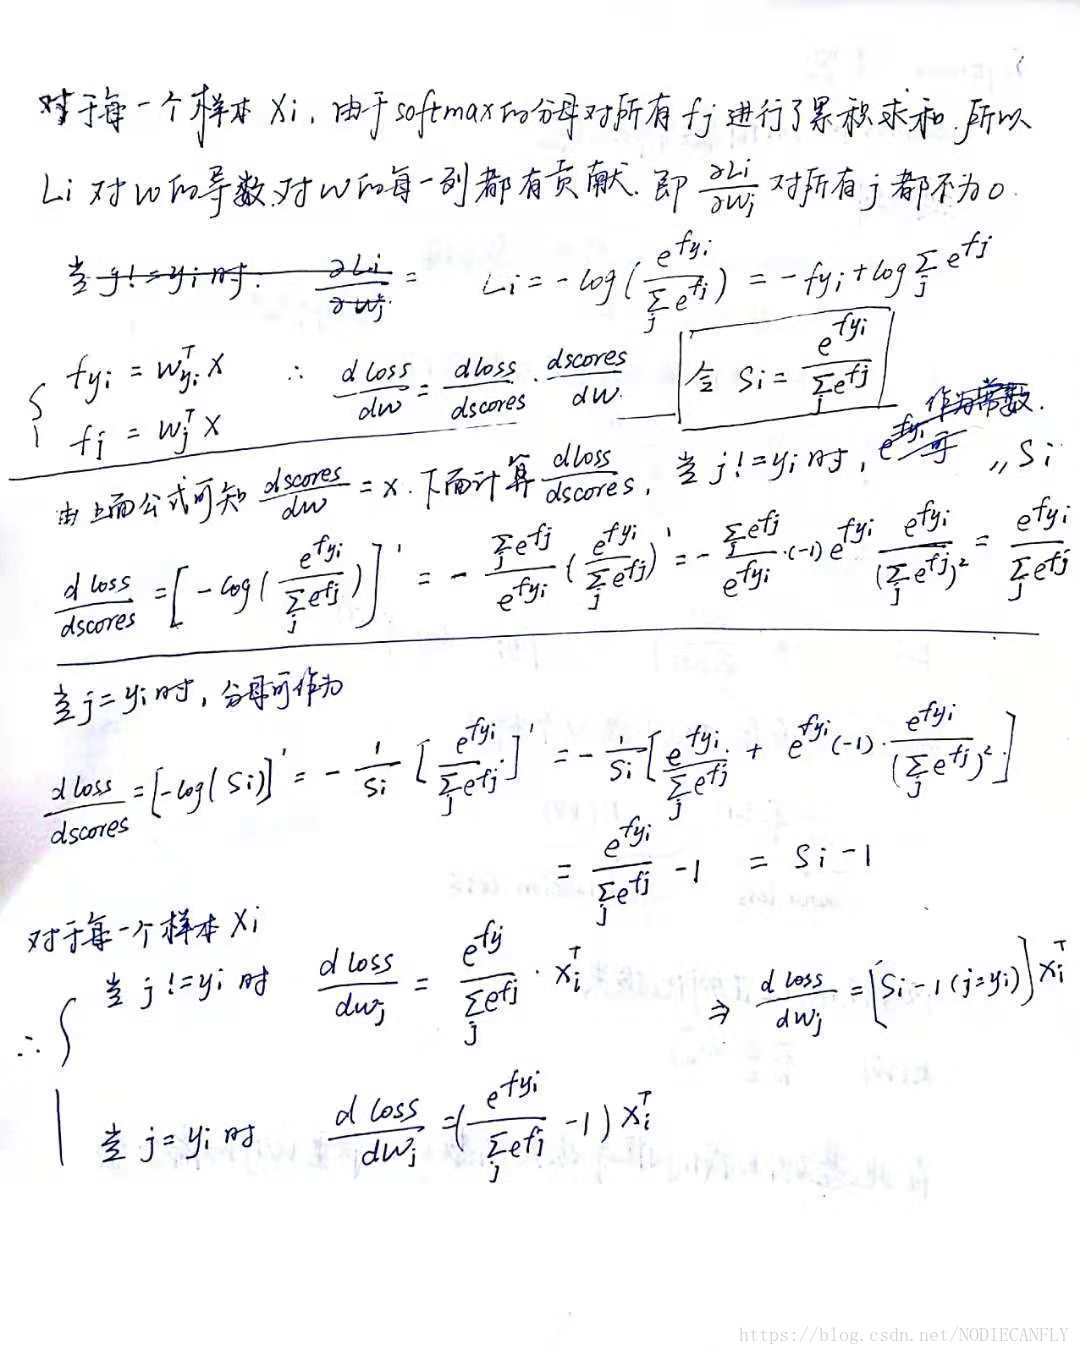 对于每一个样本 Xi, 由于softmax的分母对所有 fj 进行了累积求和. 所以
Li 对W的导数.对W的每一列都有贡献. 即 ∂Li/∂Wj 对所有 j 都不为0.
当 j!=yi时. ∂Li/∂Wj = Li = -log(e^fyi / Σj e^fj) = -fyi + log Σj e^fj
{ fyi = Wyi^T X ∴ dloss/dw = dloss/dscores · dscores/dw. 令 Si = e^fyi / Σj e^fj
fj = Wj^T X
由上面公式可知 dscores/dw = X. 下面计算 dloss/dscores, 当 j!=yi时, e^fyi 可作为常数. ,, Si
dloss/dscores = [-log(e^fyi / Σj e^fj)]' = - Σj e^fj / e^fyi (e^fyi / Σj e^fj)' = - Σj e^fj / e^fyi ·(-1) e^fyi e^fyi / (Σj e^fj)² = e^fyi / Σj e^fj
当j=yi时, 分母可作为
dloss/dscores = [-log(Si)]' = - 1/Si [e^fyi / Σj e^fj]' = - 1/Si [e^fyi / Σj e^fj + e^fyi (-1) · e^fyi / (Σj e^fj)²]
= e^fyi / Σj e^fj - 1 = Si - 1
对于每一个样本 Xi
∴ { 当 j!=yi 时 dloss/dwj = e^fj / Σj e^fj · Xi^T ⇒ dloss/dwj = [Si - 1(j=yi)] Xi^T
当 j=yi 时 dloss/dwj = (e^fyi / Σj e^fj - 1) Xi^T
https://blog.csdn.net/NODIECANFLY